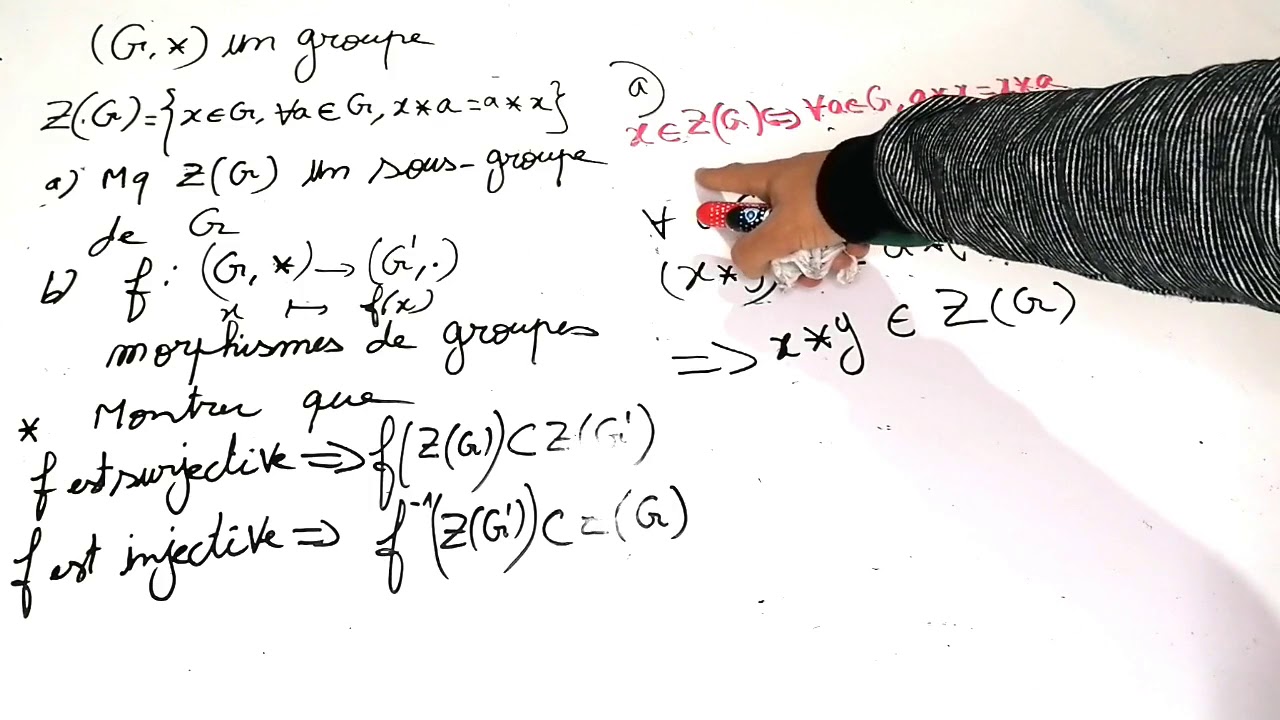 (G, *) un groupe
Z(G) = {x ∈ G, ∀a ∈ G, x * a = a * x}
a) Mq Z(G) un sous-groupe
de G
b) f : (G, *) → (G', .)
x ↦ f(x)
morphismes de groupes
* Montrer que
f est surjective ⟹ f(Z(G)) ⊂ Z(G')
f est injective ⟹ f⁻¹(Z(G')) ⊂ Z(G)
a)
x ∈ Z(G) ⟺ ∀a ∈ G, a * x = x * a
∀
(x * y)
⟹ x * y ∈ Z(G)